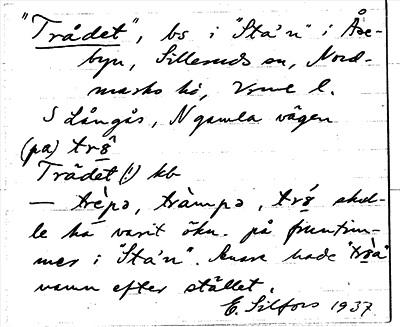 "Trådet", bs i "Sta'n" i Åse-
byn, Silleruds sn, Nord-
marks hd, Vrml l.
S Långås, N gamla vägen
(pa) trŝ
Trådet (!) kb
— trèpə, tràmpə, trś skul-
le ha varit ökn. på fruntim-
mer i "Sta'n". Snare hade "tr
namn efter stället.
E. Silfors 1937